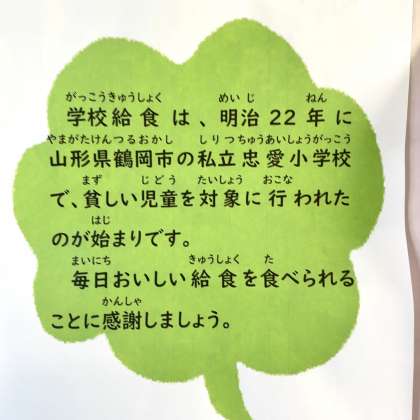 がっこうきゅうしょく めいじ ねん
学校給食は、明治22年に
やまがたけんつるおかし しりつちゅうあいしょうがっこう
山形県鶴岡市の私立忠愛小学校
まず じどう たいしょう おこな
で、貧しい児童を対象に行われた
はじ
のが始まりです。
まいにち きゅうしょく た
毎日おいしい給食を食べられる
かんしゃ
ことに感謝しましょう。